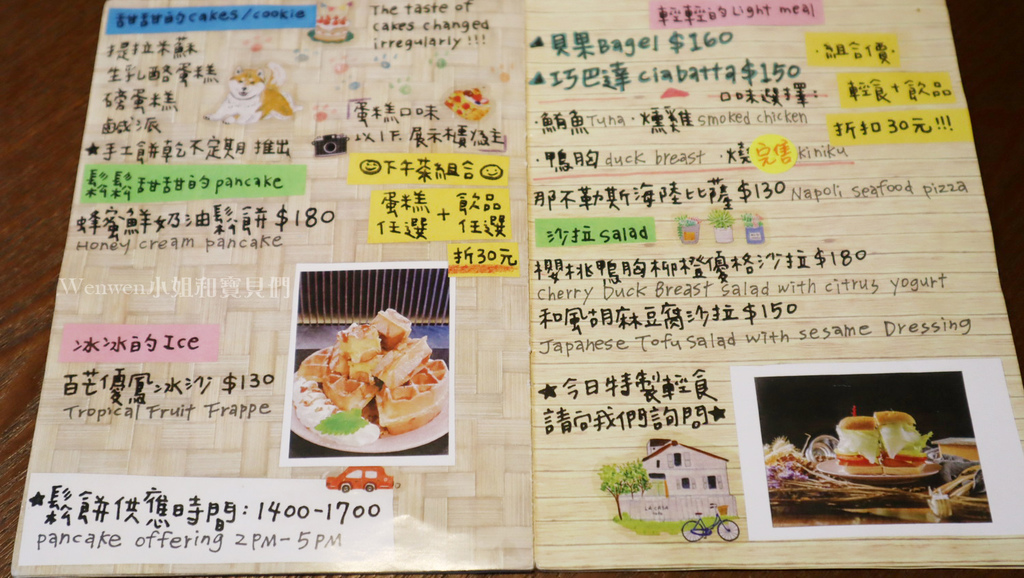 甜甜的cakes/cookie
The taste of
cakes changed
irregularly!!!
提拉米蘇
生乳酪蛋糕
磅蛋糕
鹹派
蛋糕口味
以1F.展示櫃為主
★手工餅乾不定期推出
鬆鬆甜甜的pancake
☺下午茶組合☺
蛋糕 + 飲品
任選 任選
折30元
蜂蜜鮮奶油鬆餅$180
Honey cream pancake
Wenwen小姐和寶貝們
冰冰的Ice
百芒優鳳冰沙 $130
Tropical Fruit Frappe
★鬆餅供應時間:1400-1700
pancake offering 2PM-5PM
輕輕的Light meal
▲貝果Bagel $160
▲巧巴達ciabatta$150
·組合價·
輕食+飲品
折扣30元!!!
口味選擇:
·鮪魚Tuna·燻雞smoked chicken
·鴨胸duck breast ·燒 完售 kiniku
那不勒斯海陸比薩$130 Napoli seafood pizza
沙拉salad
櫻桃鴨胸柳橙優格沙拉$180
cherry Duck Breast salad with citrus yogurt
和風胡麻豆腐沙拉$150
Japanese Tofu Salad with sesame Dressing
★今日特製輕食
請向我們詢問★